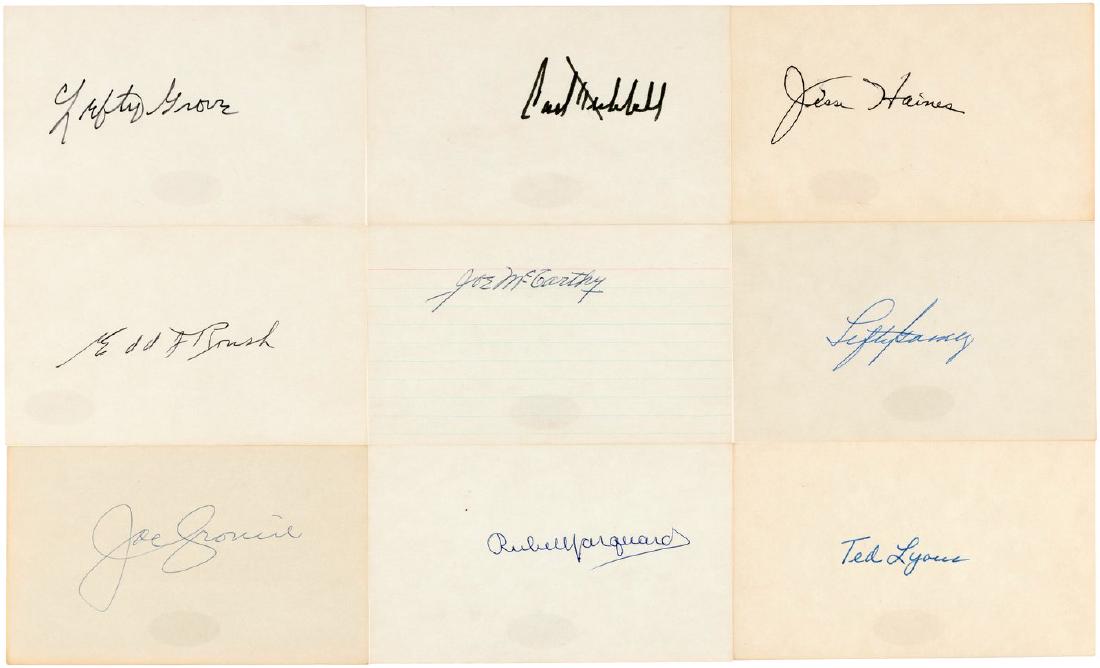 Lefty Grove
Carl Hubbell
Jess Haines
Edd J Roush
Joe McCarthy
Lefty Gomez
Joe Cronin
Rube Marquard
Ted Lyons